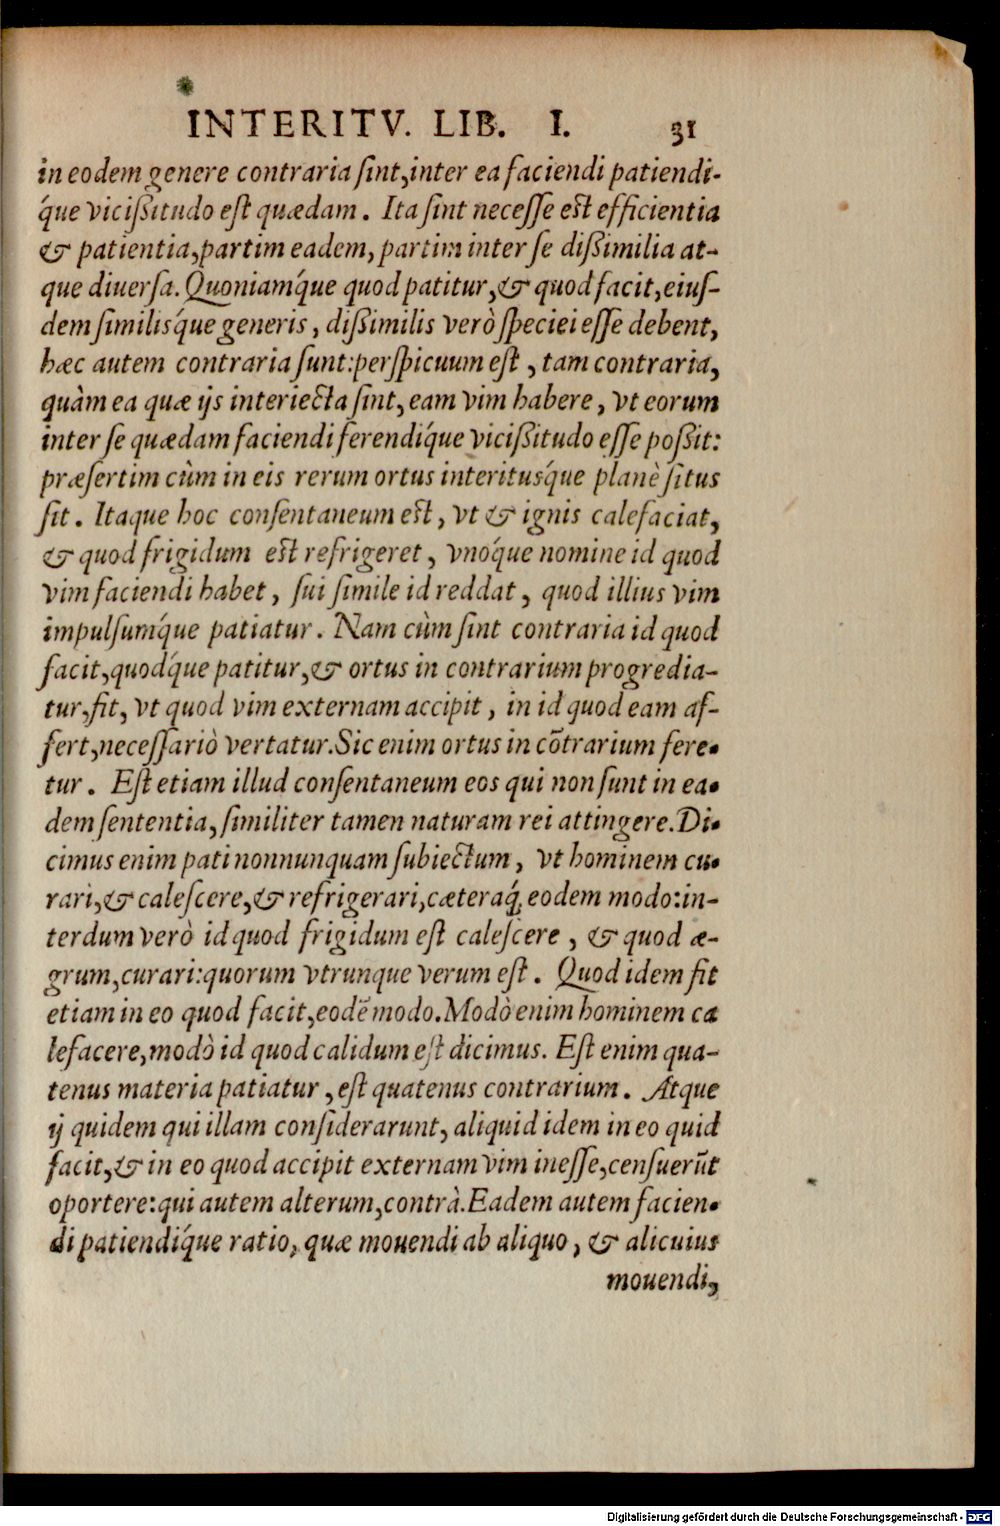 INTERITV. LIB. I. 31
in eodem genere contraria ſint,inter ea faciendi patiendi-
q́ue vicißitudo eſt quædam. Ita ſint neceſſe eſt efficientia
& patientia,partim eadem, partim inter ſe dißimilia at-
que diuerſa. Quoniamq́ue quod patitur,& quod facit,eiuſ-
dem ſimilisq́ue generis, dißimilis verò ſpeciei eſſe debent,
hæc autem contraria ſunt:perſpicuum eſt, tam contraria,
quàm ea quæ ijs interiecta ſint, eam vim habere, vt eorum
inter ſe quædam faciendi ferendiq́ue vicißitudo eſſe poßit:
præſertim cùm in eis rerum ortus interitusq́ue planè ſitus
ſit. Itaque hoc conſentaneum eſt, vt & ignis calefaciat,
& quod frigidum eſt refrigeret, vnoq́ue nomine id quod
vim faciendi habet, ſui ſimile id reddat, quod illius vim
impulſumq́ue patiatur. Nam cùm ſint contraria id quod
facit,quodq́ue patitur,& ortus in contrarium progredia-
tur,fit, vt quod vim externam accipit, in id quod eam af-
fert,neceſſariò vertatur.Sic enim ortus in cōtrarium fere-
tur. Eſt etiam illud conſentaneum eos qui non ſunt in ea-
dem ſententia, ſimiliter tamen naturam rei attingere.Di-
cimus enim pati nonnunquam ſubiectum, vt hominem cu-
rari,& caleſcere,& refrigerari,cæteraq́; eodem modo:in-
terdum verò id quod frigidum eſt caleſcere, & quod æ-
grum,curari:quorum vtrunque verum eſt. Quod idem fit
etiam in eo quod facit,eodē modo.Modò enim hominem ca
lefacere,modò id quod calidum eſt dicimus. Eſt enim qua-
tenus materia patiatur, eſt quatenus contrarium. Atque
ij quidem qui illam conſiderarunt, aliquid idem in eo quid
facit,& in eo quod accipit externam vim ineſſe,cenſuerūt
oportere:qui autem alterum,contrà.Eadem autem facien-
di patiendiq́ue ratio, quæ mouendi ab aliquo, & alicuius
mouendi,
Digitalisierung gefördert durch die Deutsche Forschungsgemeinschaft - DFG